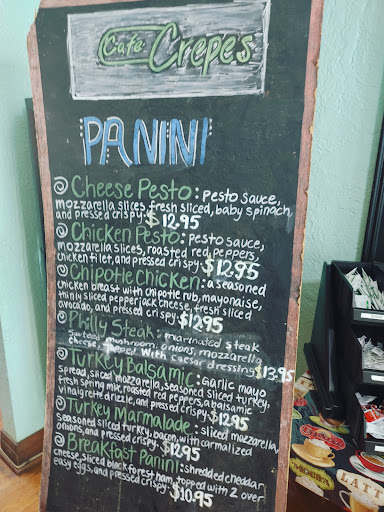 Cafe Crepes
PANINI
Cheese Pesto: pesto sauce,
mozzarella slices, fresh sliced, baby spinach,
and pressed crispy. $12.95
Chicken Pesto: pesto sauce,
mozzarella slices, roasted red peppers,
chicken filet, and pressed crispy. $12.95
Chipotle Chicken: a seasoned
chicken breast with chipotle rub, mayonaise,
thinly sliced pepperjack cheese, fresh sliced
avocado, and pressed crispy. $12.95
Philly Steak: marinated steak
mushroom, onions, mozzarella
cheese, With caesar dressing $13.95
Turkey Balsamic: Garlic mayo
spread, sliced mozzarella, seasoned sliced turkey,
fresh spring mix, roasted red peppers, a balsamic
vinaigrette drizzle, and pressed crispy. $12.95
Turkey Marmalade: sliced mozzarella,
seasoned sliced turkey, bacon, with carmalized
onions, and pressed crispy. $12.95
Breakfast Panini: shredded cheddar
cheese, sliced black forest ham, topped with 2 over
easy eggs, and pressed crispy. $10.95
LATT